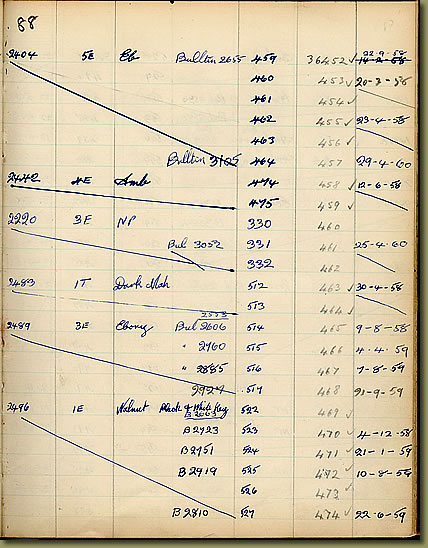 88
22-9-58
2404 5E Eb Bullton 2655 459 36452 ✓ 14-2-58
460 453 ✓ 20-3-58
461 454 ✓
462 455 ✓ 23-4-58
463 456 ✓
Bullton 3105 464 457 29-4-60
2442 4E Amb 474 458 ✓ 12-6-58
475 459 ✓
2220 3E NP 330 460
Bul 3052 331 461 25-4-60
332 462
2483 1T Dark Mah 512 463 ✓ 30-4-58
513 464 ✓
2573
2489 3E Ebony Bul 2606 514 465 9-8-58
" 2760 515 466 4-4-59
" 2885 516 467 7-8-59
2927 517 468 21-9-59
2496 1E Walnut Black & White Key 522 469 ✓
B 2663
B2723 523 470 ✓ 4-12-58
B2751 524 471 ✓ 21-1-59
B2919 525 472 ✓ 10-8-59
526 473 ✓
B2810 527 474 ✓ 22-6-59